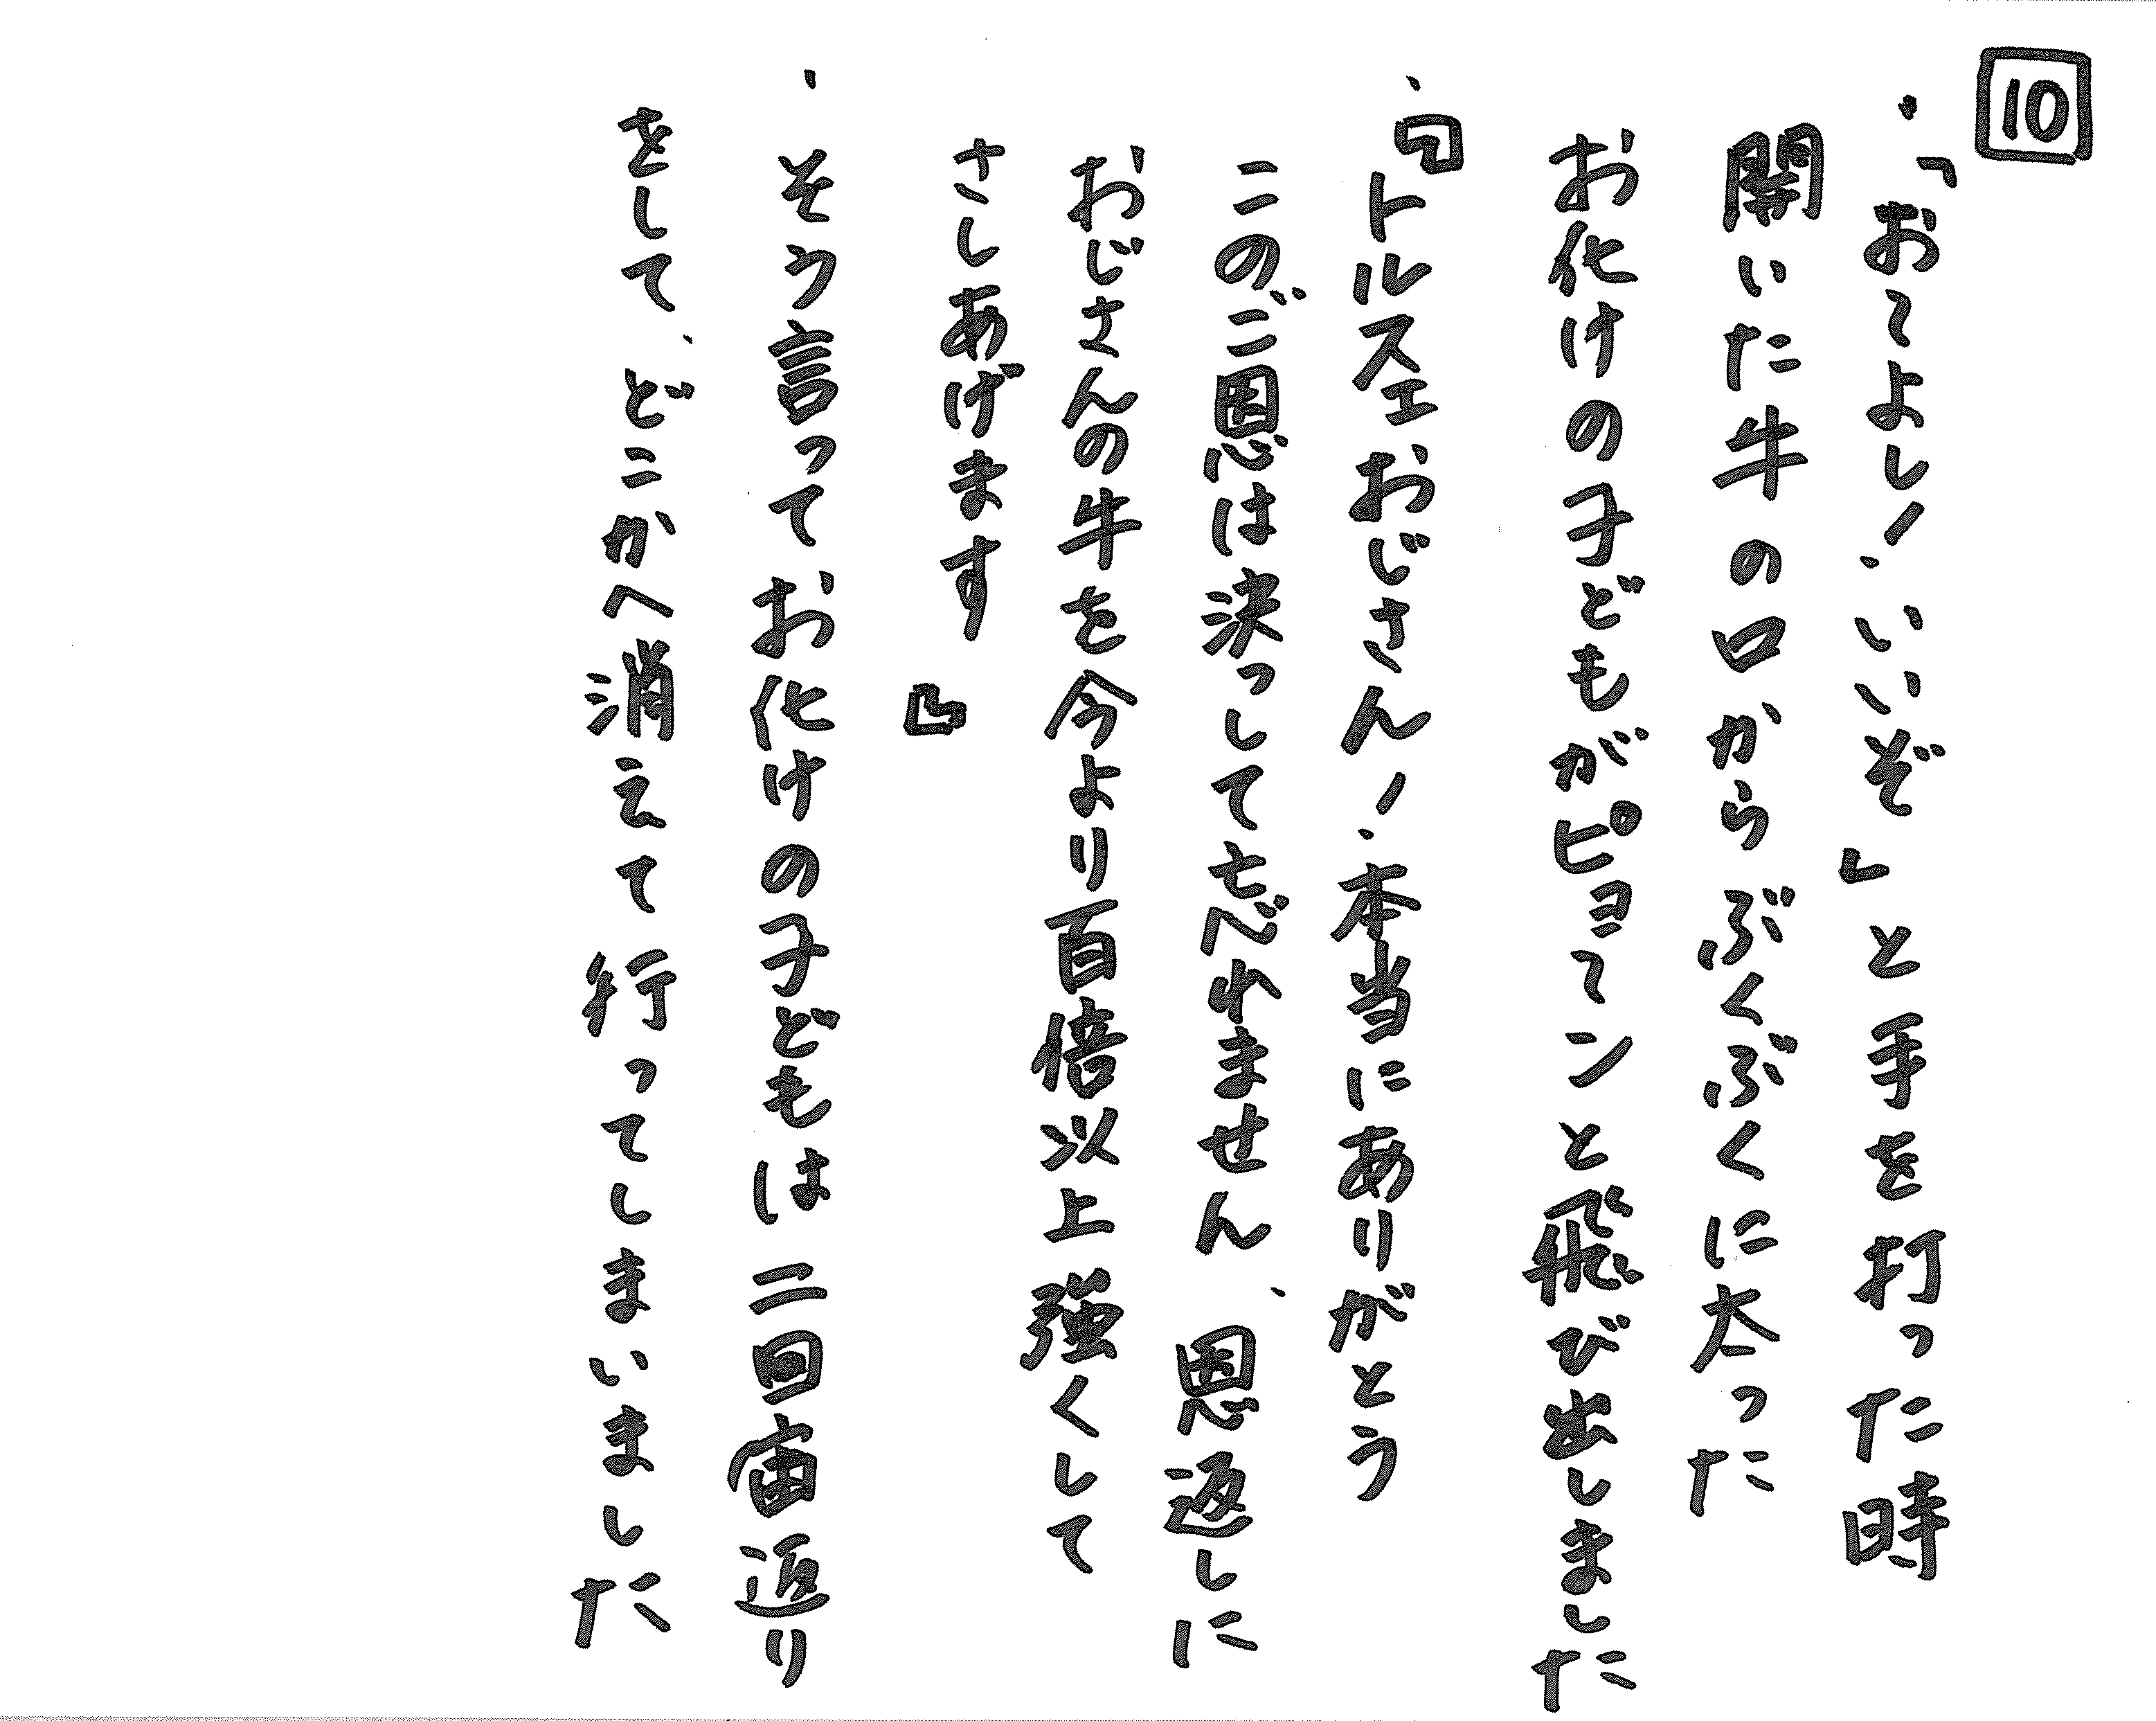 10
・「おてよし！いいぞ」と手を打った時
開いた牛の口からぶくぶくに太った
お化けの子どもがピョてンと飛び出しました
・『トルスェおじさん！本当にありがとう
このご恩は決っして亡べれません、恩返しに
おじさんの牛を今より百倍以上強くして
さしあげます』
・そう言ってお化けの子どもは二回宙返り
をして、どこかへ消えて行ってしまいました